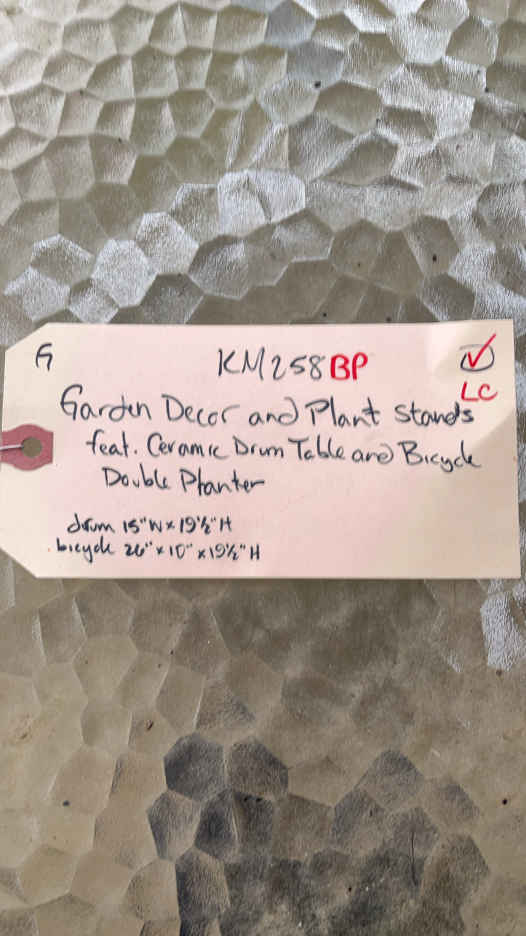 G KM258BP
LC
Garden Decor and Plant Stands
feat. Ceramic Drum Table and Bicycle
Double Planter
drum 15"W x 19½"H
bicycle 26" x 10" x 19½"H